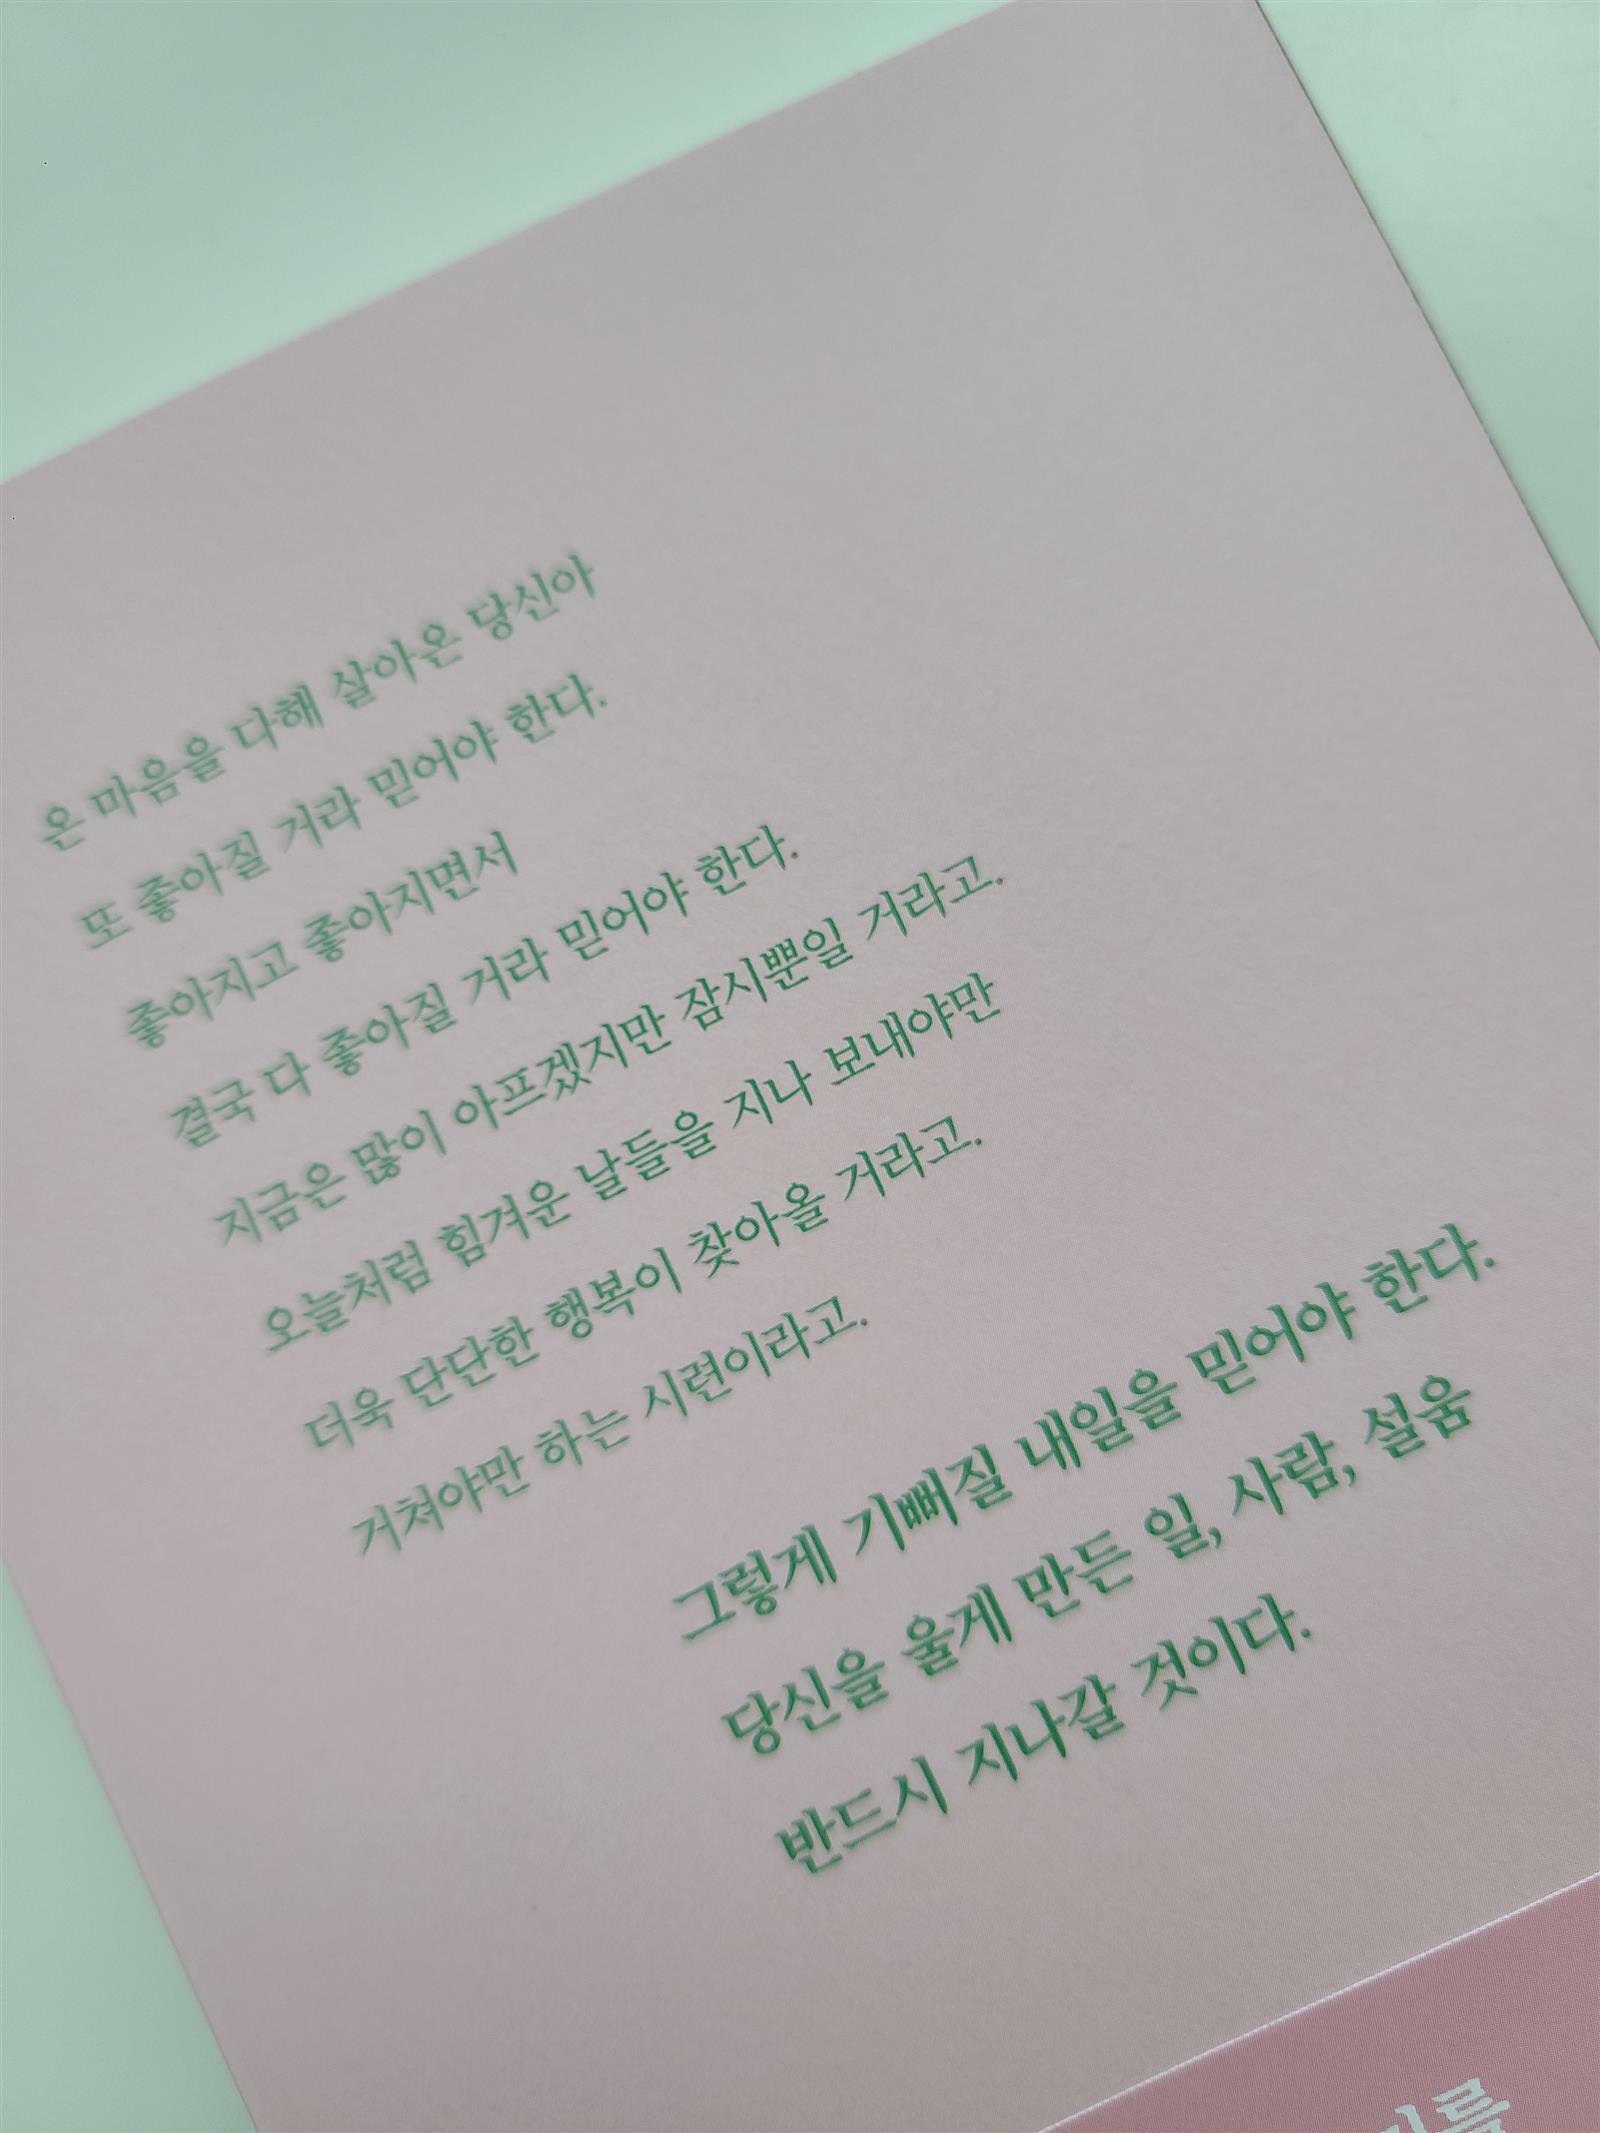 온 마음을 다해 살아온 당신아
또 좋아질 거라 믿어야 한다.
좋아지고 좋아지면서
결국 다 좋아질 거라 믿어야 한다.
지금은 많이 아프겠지만 잠시뿐일 거라고.
오늘처럼 힘겨운 날들을 지나 보내야만
더욱 단단한 행복이 찾아올 거라고.
거쳐야만 하는 시련이라고.
그렇게 기뻐질 내일을 믿어야 한다.
당신을 울게 만든 일, 사람, 설움
반드시 지나갈 것이다.